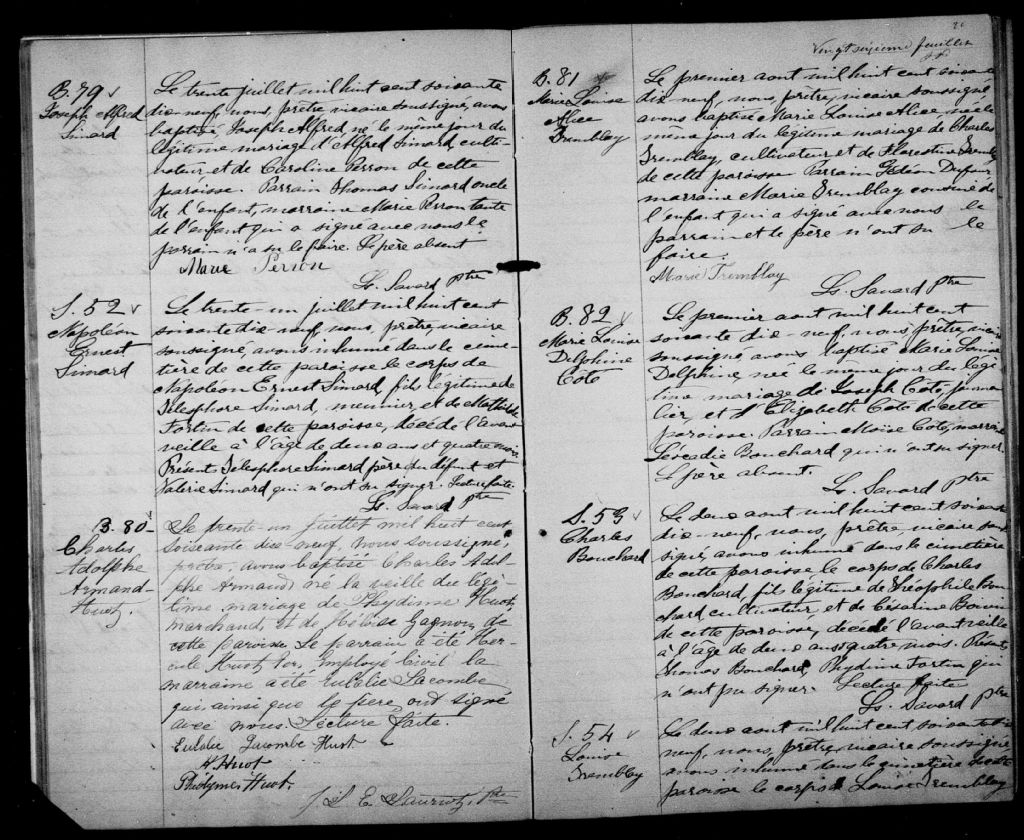 B. 79
Joseph Alfred
Simard
Le trente juillet mil huit cent soixante
dix-neuf, nous, prêtre, vicaire soussigné, avons
baptisé Joseph Alfred, né le même jour du
légitime mariage d'Alfred Simard, culti-
vateur, et de Caroline Perron de cette
paroisse. Parrain Thomas Simard oncle
de l'enfant, marraine Marie Perron tante
de l'enfant qui a signé avec nous le
parrain n'a su le faire. Le père absent
Marie Perron
Ls. Savard ptre
S. 52
Napoléon
Ernest
Simard
Le trente-un juillet mil huit cent
soixante dix-neuf, nous, prêtre, vicaire
soussigné, avons inhumé dans le cime-
tière de cette paroisse le corps de
Napoléon Ernest Simard, fils légitime de
Télesphore Simard, meunier, et de Mathilde
Fortin de cette paroisse, décédé l'avant
veille à l'âge de deux ans et quatre mois
Présent Télesphore Simard père du défunt et
Valérie Simard qui n'ont su signer. Lecture faite.
Ls. Savard ptre
B. 80
Charles
Adolphe
Armand
Huot.
Le trente-un juillet mil huit cent
soixante dix-neuf, nous soussigné,
avons baptisé Charles Adol-
phe Armand né la veille du légi-
time mariage de Phydime Huot,
marchand, et de Héloïse Gagnon, de
cette paroisse. Le parrain a été Her-
cule Huot, Employé Civil la
marraine a été Eulalie Lacombe
qui ainsi que le père ont signé
avec nous. Lecture faite.
Eulalie Lacombe Huot
H. Huot
Phidyme Huot.
26
Vingt sixième feuillet
B. 81
Marie Louise
Alice
Tremblay
Le premier aout mil huit cent soixante
dix-neuf, nous, prêtre, vicaire soussigné
avons baptisé Marie Louise Alice, née le
même jour du légitime mariage de Charles
Tremblay, cultivateur et de Florestine Tremb
de cette paroisse Parrain Gédéon Dufour
marraine Marie Tremblay cousine de
l'enfant qui a signé avec nous le
parrain et le père n'ont su le
faire.
Marie Tremblay
Ls. Savard ptre
B. 82
Marie Louise
Delphine
Coté
Le premier aout mil huit cent
soixante dix neuf, nous, prêtre, vicaire
soussigné avons baptisé Marie Louise
Delphine, née le même jour du légi-
time mariage de Joseph Coté, journa-
lier, et d'Elizabeth Coté de cette
paroisse. Parrain Moïse Coté, marraine
Léocadie Bouchard qui n'ont su signer.
Le père absent.
Ls. Savard ptre
S. 53
Charles
Bouchard
Le deux aout mil huit cent soixante
dix-neuf, nous, prêtre, vicaire sous
signé, avons inhumé dans le cimetière
de cette paroisse le corps de Charles
Bouchard, fils légitime de Théophile Bou
chard cultivateur, et de Césarine
de cette paroisse, décédé l'avant veille
à l'âge de deux ans quatre mois. Présent
Thomas Bouchard, Phydime Fortin qui
n'ont pu signer. Lecture faite
Ls. Savard ptre
S. 54
Louise
Tremblay
Le deux aout mil huit cent soixante dix
neuf, nous, prêtre, vicaire soussigné,
avons inhumé dans le cimetière de cette
paroisse le corps de Louise Tremblay